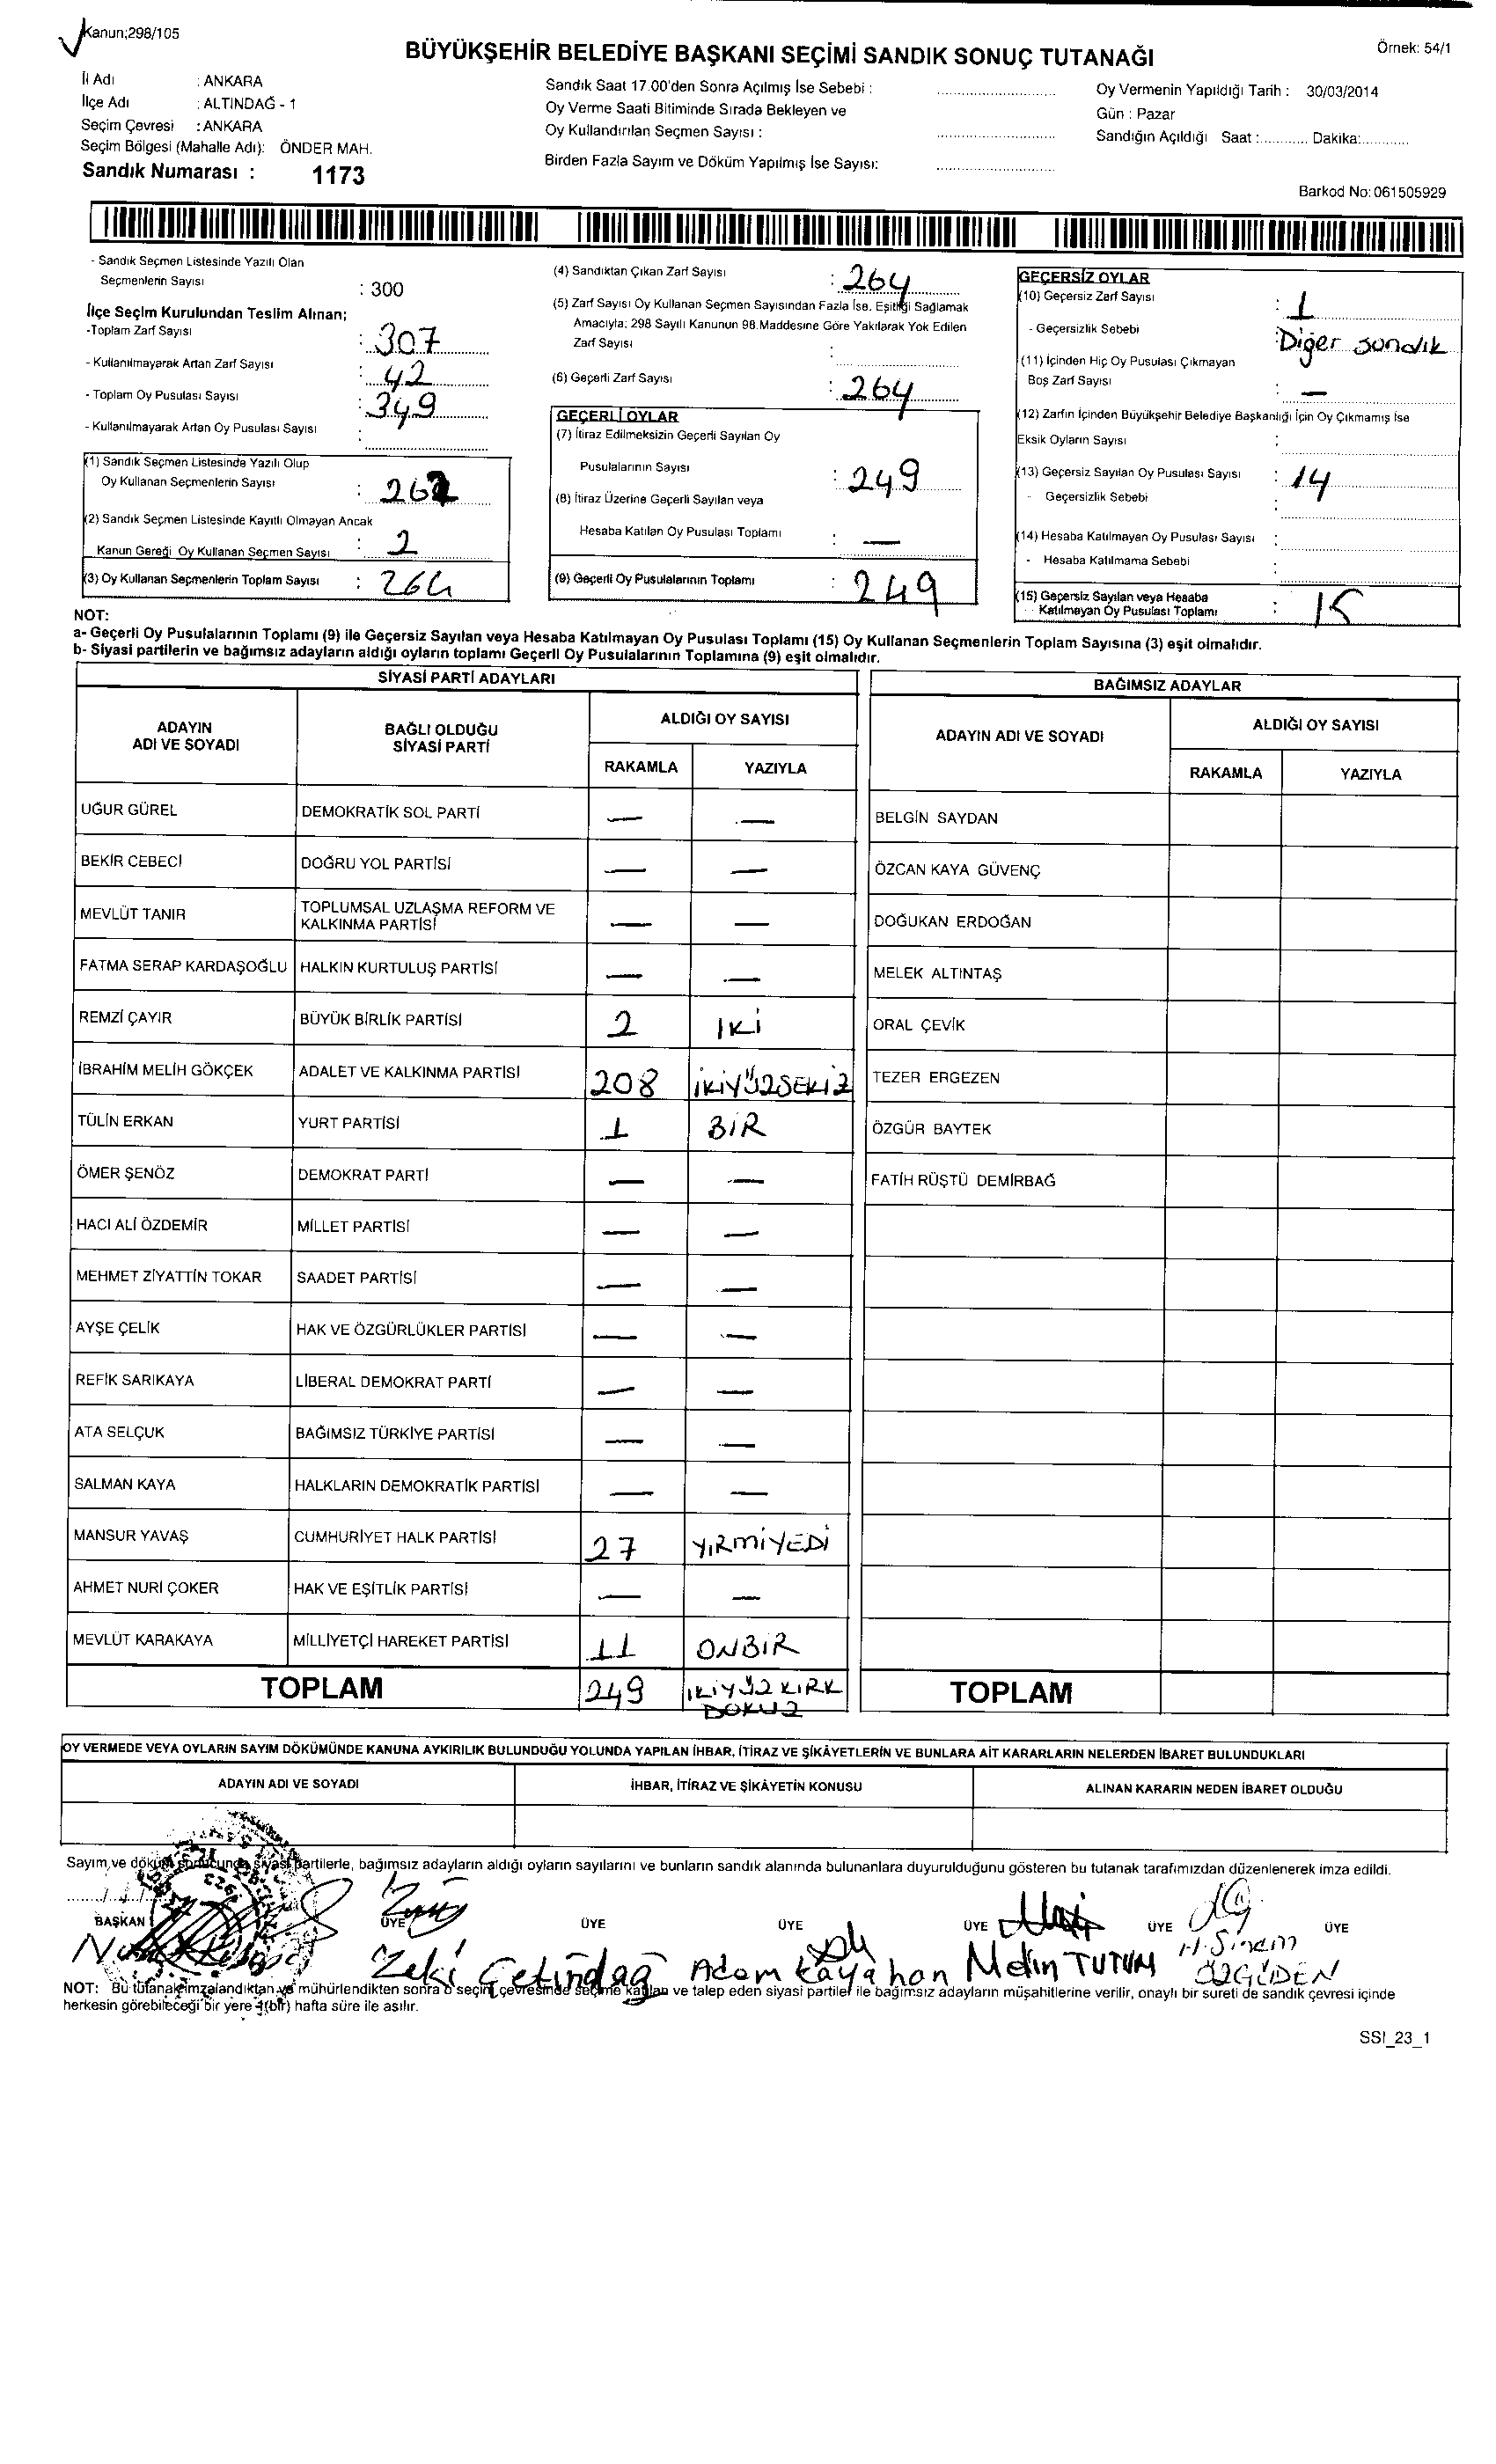 Kanun;298/105
BÜYÜKŞEHİR BELEDİYE BAŞKANI SEÇİMİ SANDIK SONUÇ TUTANAĞI
Örnek: 54/1
İl Adı : ANKARA
İlçe Adı : ALTINDAĞ - 1
Seçim Çevresi : ANKARA
Seçim Bölgesi (Mahalle Adı): ÖNDER MAH.
Sandık Numarası : 1173
Sandık Saat 17.00'den Sonra Açılmış İse Sebebi :
Oy Verme Saati Bitiminde Sırada Bekleyen ve
Oy Kullandırılan Seçmen Sayısı :
Birden Fazla Sayım ve Döküm Yapılmış İse Sayısı:
Oy Vermenin Yapıldığı Tarih : 30/03/2014
Gün : Pazar
Sandığın Açıldığı Saat :............ Dakika:............
Barkod No: 061505929
- Sandık Seçmen Listesinde Yazılı Olan
Seçmenlerin Sayısı : 300
İlçe Seçim Kurulundan Teslim Alınan;
-Toplam Zarf Sayısı : 307
- Kullanılmayarak Artan Zarf Sayısı : 42
- Toplam Oy Pusulası Sayısı : 349
- Kullanılmayarak Artan Oy Pusulası Sayısı :
(1) Sandık Seçmen Listesinde Yazılı Olup
Oy Kullanan Seçmenlerin Sayısı : 262
(2) Sandık Seçmen Listesinde Kayıtlı Olmayan Ancak
Kanun Gereği Oy Kullanan Seçmen Sayısı : 2
(3) Oy Kullanan Seçmenlerin Toplam Sayısı : 264
(4) Sandıktan Çıkan Zarf Sayısı : 264
(5) Zarf Sayısı Oy Kullanan Seçmen Sayısından Fazla İse, Eşitliği Sağlamak
Amacıyla; 298 Sayılı Kanunun 98.Maddesine Göre Yakılarak Yok Edilen
Zarf Sayısı :
(6) Geçerli Zarf Sayısı : 264
GEÇERLİ OYLAR
(7) İtiraz Edilmeksizin Geçerli Sayılan Oy
Pusulalarının Sayısı : 249
(8) İtiraz Üzerine Geçerli Sayılan veya
Hesaba Katılan Oy Pusulası Toplamı : —
(9) Geçerli Oy Pusulalarının Toplamı : 249
GEÇERSİZ OYLAR
(10) Geçersiz Zarf Sayısı : 1
- Geçersizlik Sebebi : Diğer sandık
(11) İçinden Hiç Oy Pusulası Çıkmayan
Boş Zarf Sayısı : —
(12) Zarfın İçinden Büyükşehir Belediye Başkanlığı İçin Oy Çıkmamış İse
Eksik Oyların Sayısı :
(13) Geçersiz Sayılan Oy Pusulası Sayısı : 14
- Geçersizlik Sebebi :
(14) Hesaba Katılmayan Oy Pusulası Sayısı :
- Hesaba Katılmama Sebebi :
(15) Geçersiz Sayılan veya Hesaba
Katılmayan Oy Pusulası Toplamı : 15
NOT:
a- Geçerli Oy Pusulalarının Toplamı (9) ile Geçersiz Sayılan veya Hesaba Katılmayan Oy Pusulası Toplamı (15) Oy Kullanan Seçmenlerin Toplam Sayısına (3) eşit olmalıdır.
b- Siyasi partilerin ve bağımsız adayların aldığı oyların toplamı Geçerli Oy Pusulalarının Toplamına (9) eşit olmalıdır.
SİYASİ PARTİ ADAYLARI
ADAYIN ADI VE SOYADI BAĞLI OLDUĞU SİYASİ PARTİ ALDIĞI OY SAYISI
RAKAMLA YAZIYLA
UĞUR GÜREL DEMOKRATİK SOL PARTİ — —
BEKİR CEBECİ DOĞRU YOL PARTİSİ — —
MEVLÜT TANIR TOPLUMSAL UZLAŞMA REFORM VE KALKINMA PARTİSİ — —
FATMA SERAP KARDAŞOĞLU HALKIN KURTULUŞ PARTİSİ — —
REMZİ ÇAYIR BÜYÜK BİRLİK PARTİSİ 2 İKİ
İBRAHİM MELİH GÖKÇEK ADALET VE KALKINMA PARTİSİ 208 İKİYÜZSEKİZ
TÜLİN ERKAN YURT PARTİSİ 1 BİR
ÖMER ŞENÖZ DEMOKRAT PARTİ — —
HACI ALİ ÖZDEMİR MİLLET PARTİSİ — —
MEHMET ZİYATTİN TOKAR SAADET PARTİSİ — —
AYŞE ÇELİK HAK VE ÖZGÜRLÜKLER PARTİSİ — —
REFİK SARIKAYA LİBERAL DEMOKRAT PARTİ — —
ATA SELÇUK BAĞIMSIZ TÜRKİYE PARTİSİ — —
SALMAN KAYA HALKLARIN DEMOKRATİK PARTİSİ — —
MANSUR YAVAŞ CUMHURİYET HALK PARTİSİ 27 YİRMİYEDİ
AHMET NURİ ÇOKER HAK VE EŞİTLİK PARTİSİ — —
MEVLÜT KARAKAYA MİLLİYETÇİ HAREKET PARTİSİ 11 ONBİR
TOPLAM 249 İKİYÜZ KIRK DOKUZ
BAĞIMSIZ ADAYLAR
ADAYIN ADI VE SOYADI ALDIĞI OY SAYISI
RAKAMLA YAZIYLA
BELGİN SAYDAN
ÖZCAN KAYA GÜVENÇ
DOĞUKAN ERDOĞAN
MELEK ALTINTAŞ
ORAL ÇEVİK
TEZER ERGEZEN
ÖZGÜR BAYTEK
FATİH RÜŞTÜ DEMİRBAĞ
TOPLAM
OY VERMEDE VEYA OYLARIN SAYIM DÖKÜMÜNDE KANUNA AYKIRILIK BULUNDUĞU YOLUNDA YAPILAN İHBAR, İTİRAZ VE ŞİKÂYETLERİN VE BUNLARA AİT KARARLARIN NELERDEN İBARET BULUNDUKLARI
ADAYIN ADI VE SOYADI İHBAR, İTİRAZ VE ŞİKÂYETİN KONUSU ALINAN KARARIN NEDEN İBARET OLDUĞU
Sayım ve döküm sonucunda siyasi partilerle, bağımsız adayların aldığı oyların sayılarını ve bunların sandık alanında bulunanlara duyurulduğunu gösteren bu tutanak tarafımızdan düzenlenerek imza edildi.
BAŞKAN ÜYE ÜYE ÜYE ÜYE ÜYE ÜYE
Zeki Çetindağ Adem Kayahan Metin TUTUM H. Sinem ÖZGİDEN
NOT: Bu tutanak imzalandıktan ve mühürlendikten sonra o seçim çevresinde seçime katılan ve talep eden siyasi partiler ile bağımsız adayların müşahitlerine verilir, onaylı bir sureti de sandık çevresi içinde
herkesin görebileceği bir yere 1(bir) hafta süre ile asılır.
SSI_23_1